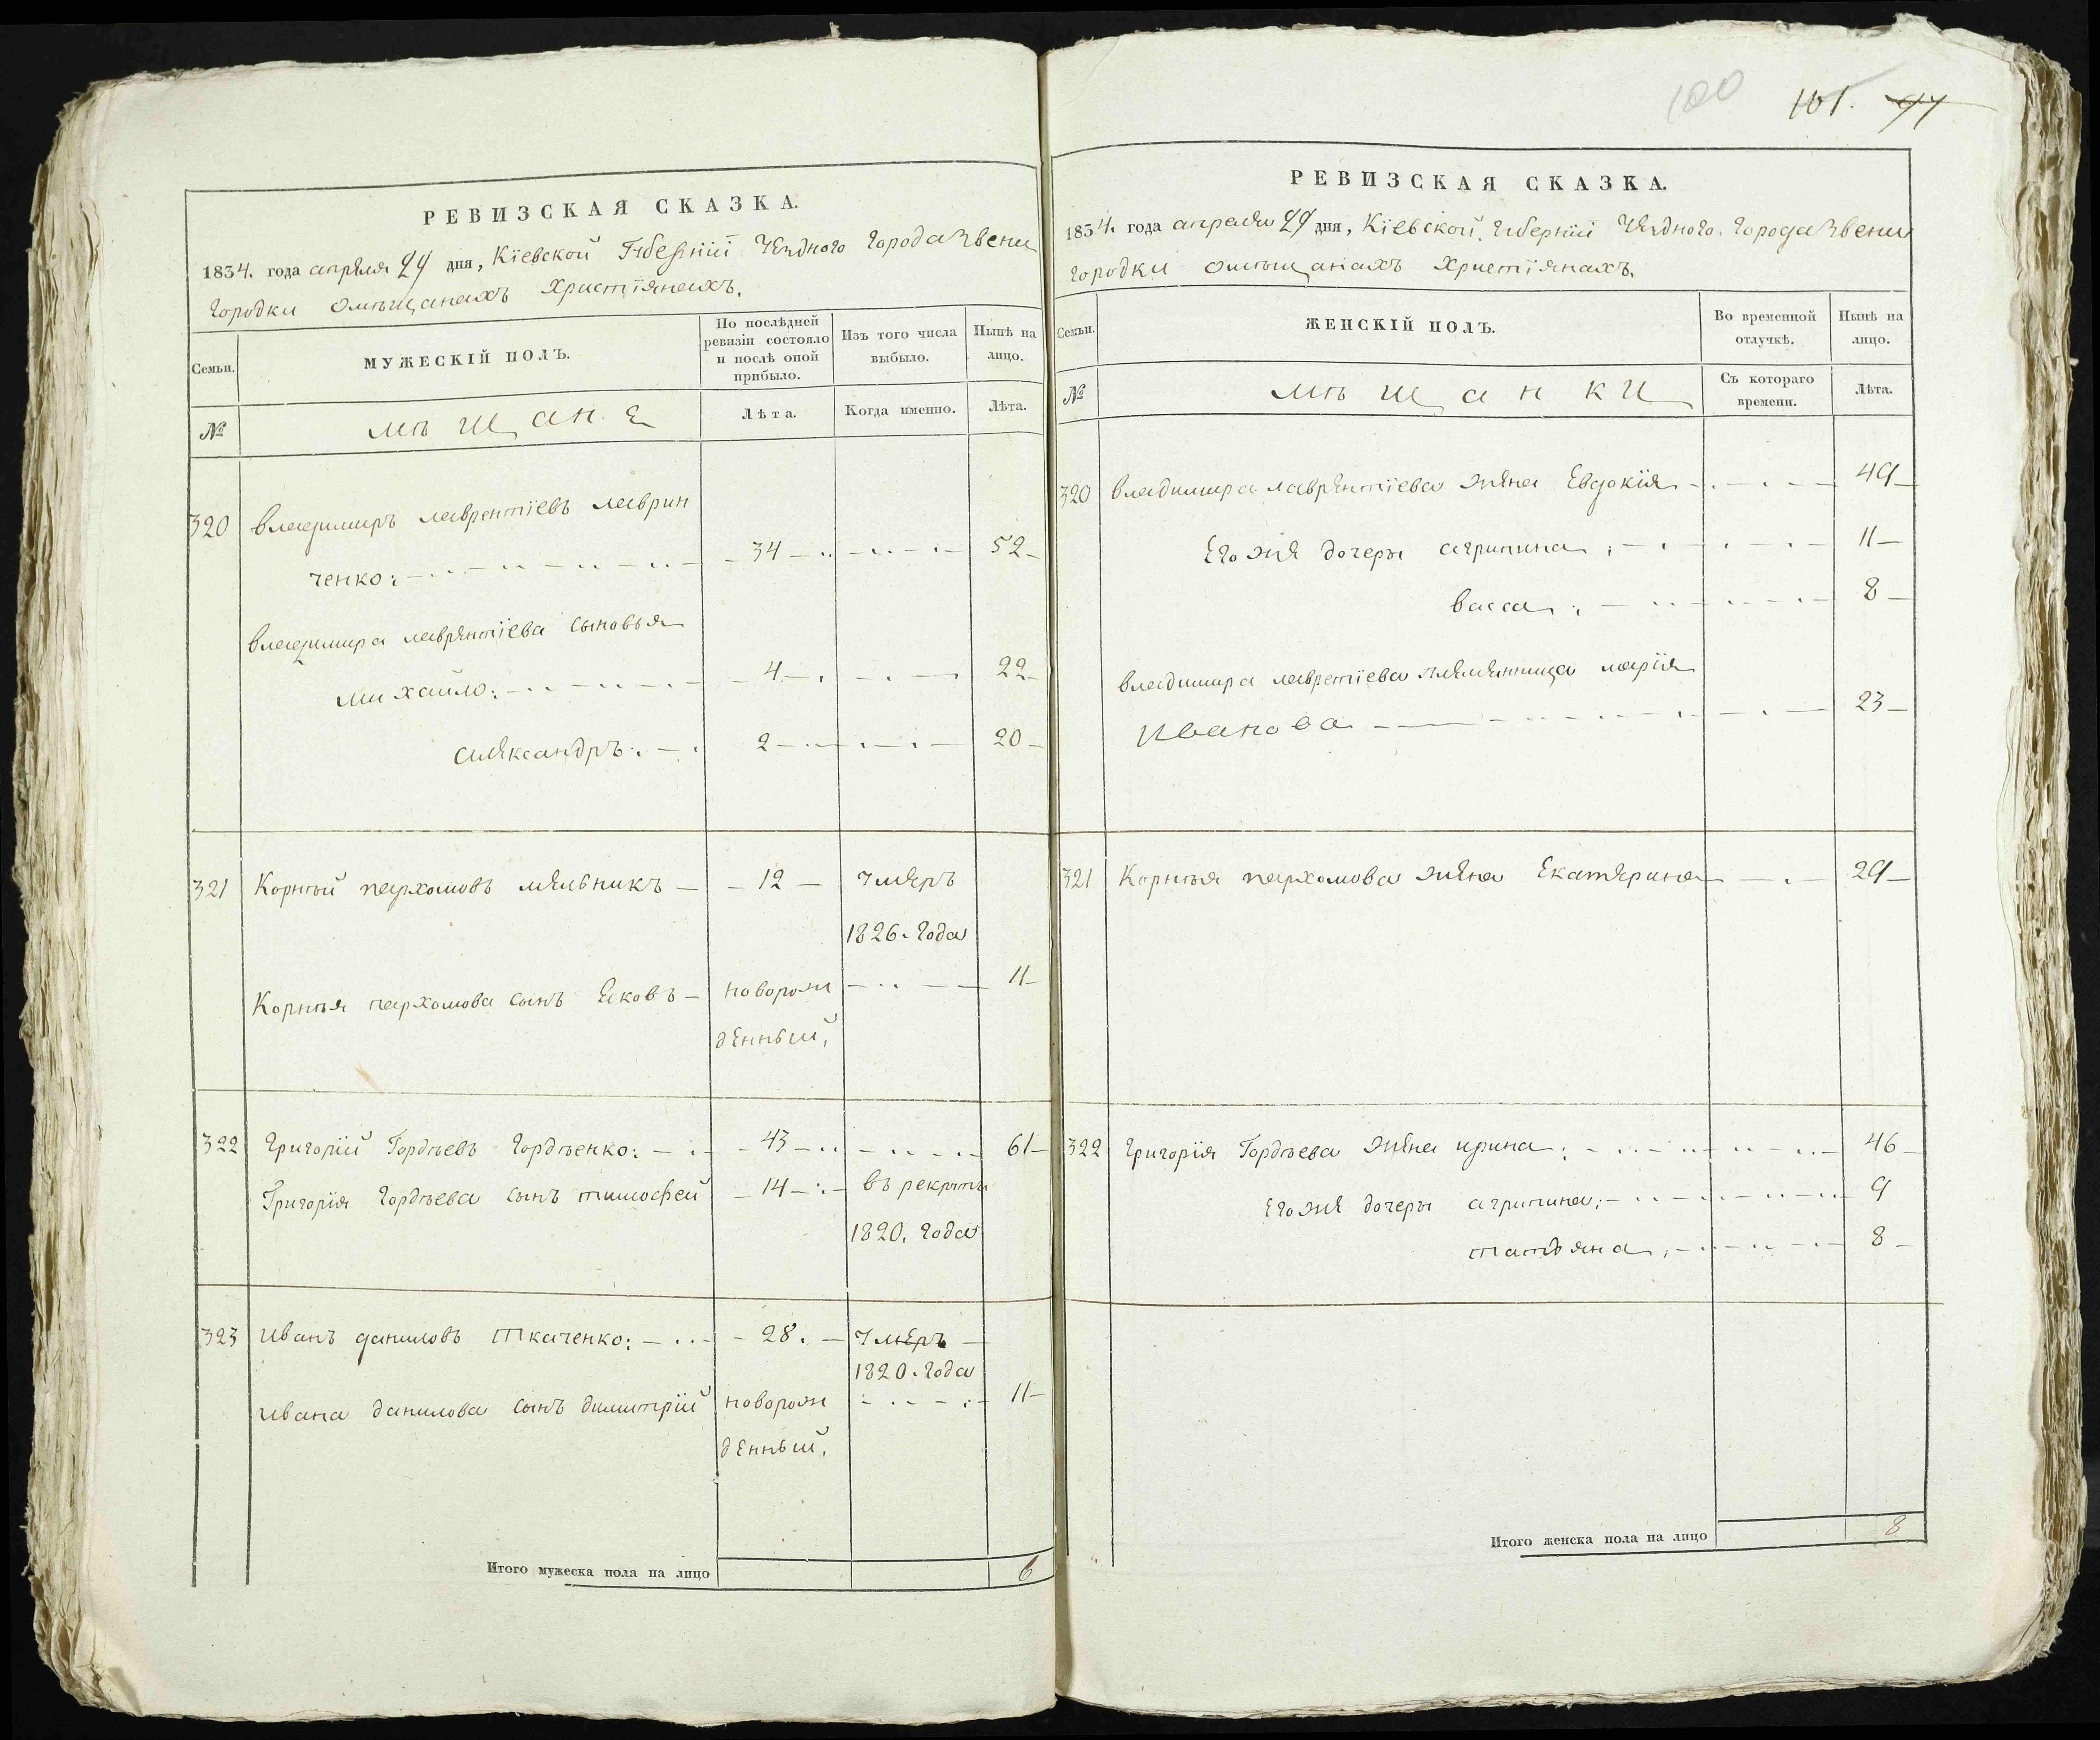 РЕВИЗСКАЯ СКАЗКА.
1834. года апреля 24 дня, Кіевской Губерніи Уезднаго города Звени
городки омѣщанахъ христіянахъ.
Семьи.
МУЖЕСКІЙ ПОЛЪ.
По послѣдней ревизіи состояло и послѣ оной прибыло.
Изъ того числа выбыло.
Нынѣ на лицо.
№
мѣщане
Лѣта.
Когда именно.
Лѣта.
320 владимиръ лаврентіевъ лаврин
ченко: 34 52
владимира лаврентіева сыновья
михайло: 4 22
александръ: 2 20
321 Корнѣй пархомовъ мельникъ 12 умеръ
1826. года
Корнѣя пархомова сынъ Яковъ новорож 11
денный,
322 григорій Гордѣевъ гордѣенко: 43 61
Григорія гордѣева сынъ тимофей 14 въ рекруты
1820. года
323 иванъ даниловъ ткаченко: 28. умеръ
1820. года
ивана данилова сынъ димитрій новорож 11
денный,
Итого мужеска пола на лицо 6
100 101. 97
РЕВИЗСКАЯ СКАЗКА.
1834. года апреля 24 дня, Кіевской. губерніи Уезднаго. города Звени
городки омѣщанахъ христіянахъ.
Семьи.
ЖЕНСКІЙ ПОЛЪ.
Во временной отлучкѣ.
Нынѣ на лицо.
№
мѣщанки
Съ котораго времени.
Лѣта.
320 владимира лаврентіева жена Евдокія 49
Его же дочеры агрипина 11
васса 8
владимира лавретіева племянница марія
иванова 23
321 Корнѣя пархомова жена Екатерина 29
322 григорія Гордѣева жена ирина: 46
Его же дочеры агрипина: 9
татъяна 8
Итого женска пола на лицо 8